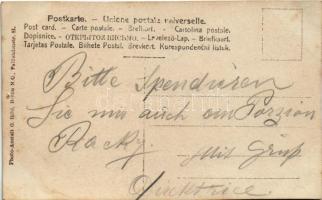 Postkarte. – Unione postale universelle.
Post card. – Carte postale. – Brefkort. – Cartolina postale.
Dopisnice. – ОТКРЫТОЕ ПИСЬМО. – Levelező-Lap. – Briefkaart.
Tarjetas Postale. Bilhete Postal. Brevkort. Korespondenční lístek.
Bitte Spendieren
Sie mir auch ein Porzion
Racky.
Mit Gruß